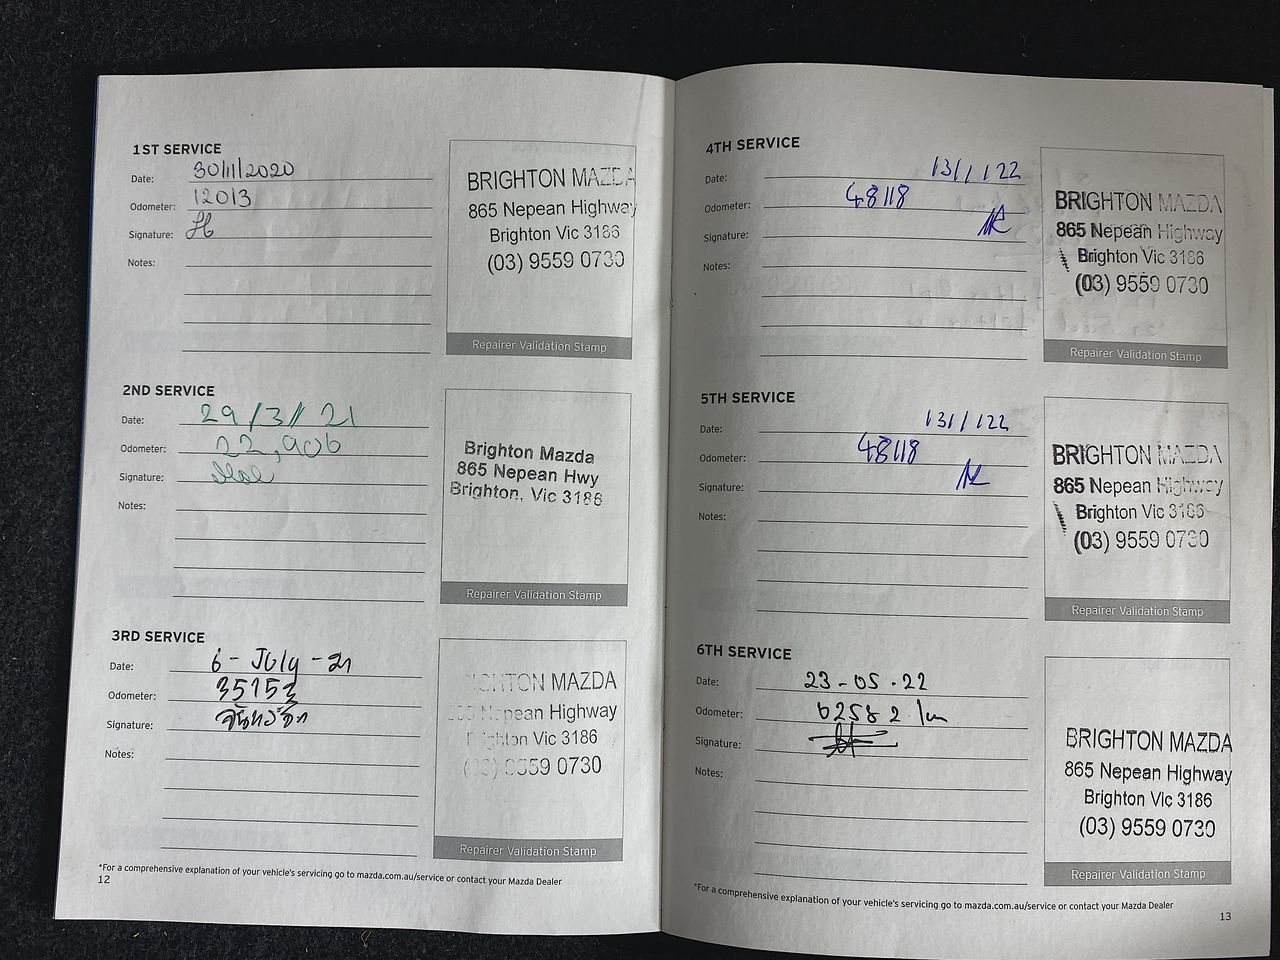 1ST SERVICE
Date: 30/11/2020
Odometer: 12013
Signature:
Notes:
BRIGHTON MAZDA
865 Nepean Highway
Brighton Vic 3186
(03) 9559 0730
Repairer Validation Stamp
2ND SERVICE
Date: 29/3/21
Odometer: 22,906
Signature:
Notes:
Brighton Mazda
865 Nepean Hwy
Brighton, Vic 3186
Repairer Validation Stamp
3RD SERVICE
Date: 6-July-21
Odometer: 35153
Signature:
Notes:
BRIGHTON MAZDA
865 Nepean Highway
Brighton Vic 3186
(03) 9559 0730
Repairer Validation Stamp
*For a comprehensive explanation of your vehicle's servicing go to mazda.com.au/service or contact your Mazda Dealer
12
4TH SERVICE
Date: 13/1/22
Odometer: 48118
Signature:
Notes:
BRIGHTON MAZDA
865 Nepean Highway
Brighton Vic 3186
(03) 9559 0730
Repairer Validation Stamp
5TH SERVICE
Date: 13/1/22
Odometer: 48118
Signature:
Notes:
BRIGHTON MAZDA
865 Nepean Highway
Brighton Vic 3186
(03) 9559 0730
Repairer Validation Stamp
6TH SERVICE
Date: 23-05-22
Odometer: 62582 km
Signature:
Notes:
BRIGHTON MAZDA
865 Nepean Highway
Brighton Vic 3186
(03) 9559 0730
Repairer Validation Stamp
*For a comprehensive explanation of your vehicle's servicing go to mazda.com.au/service or contact your Mazda Dealer
13